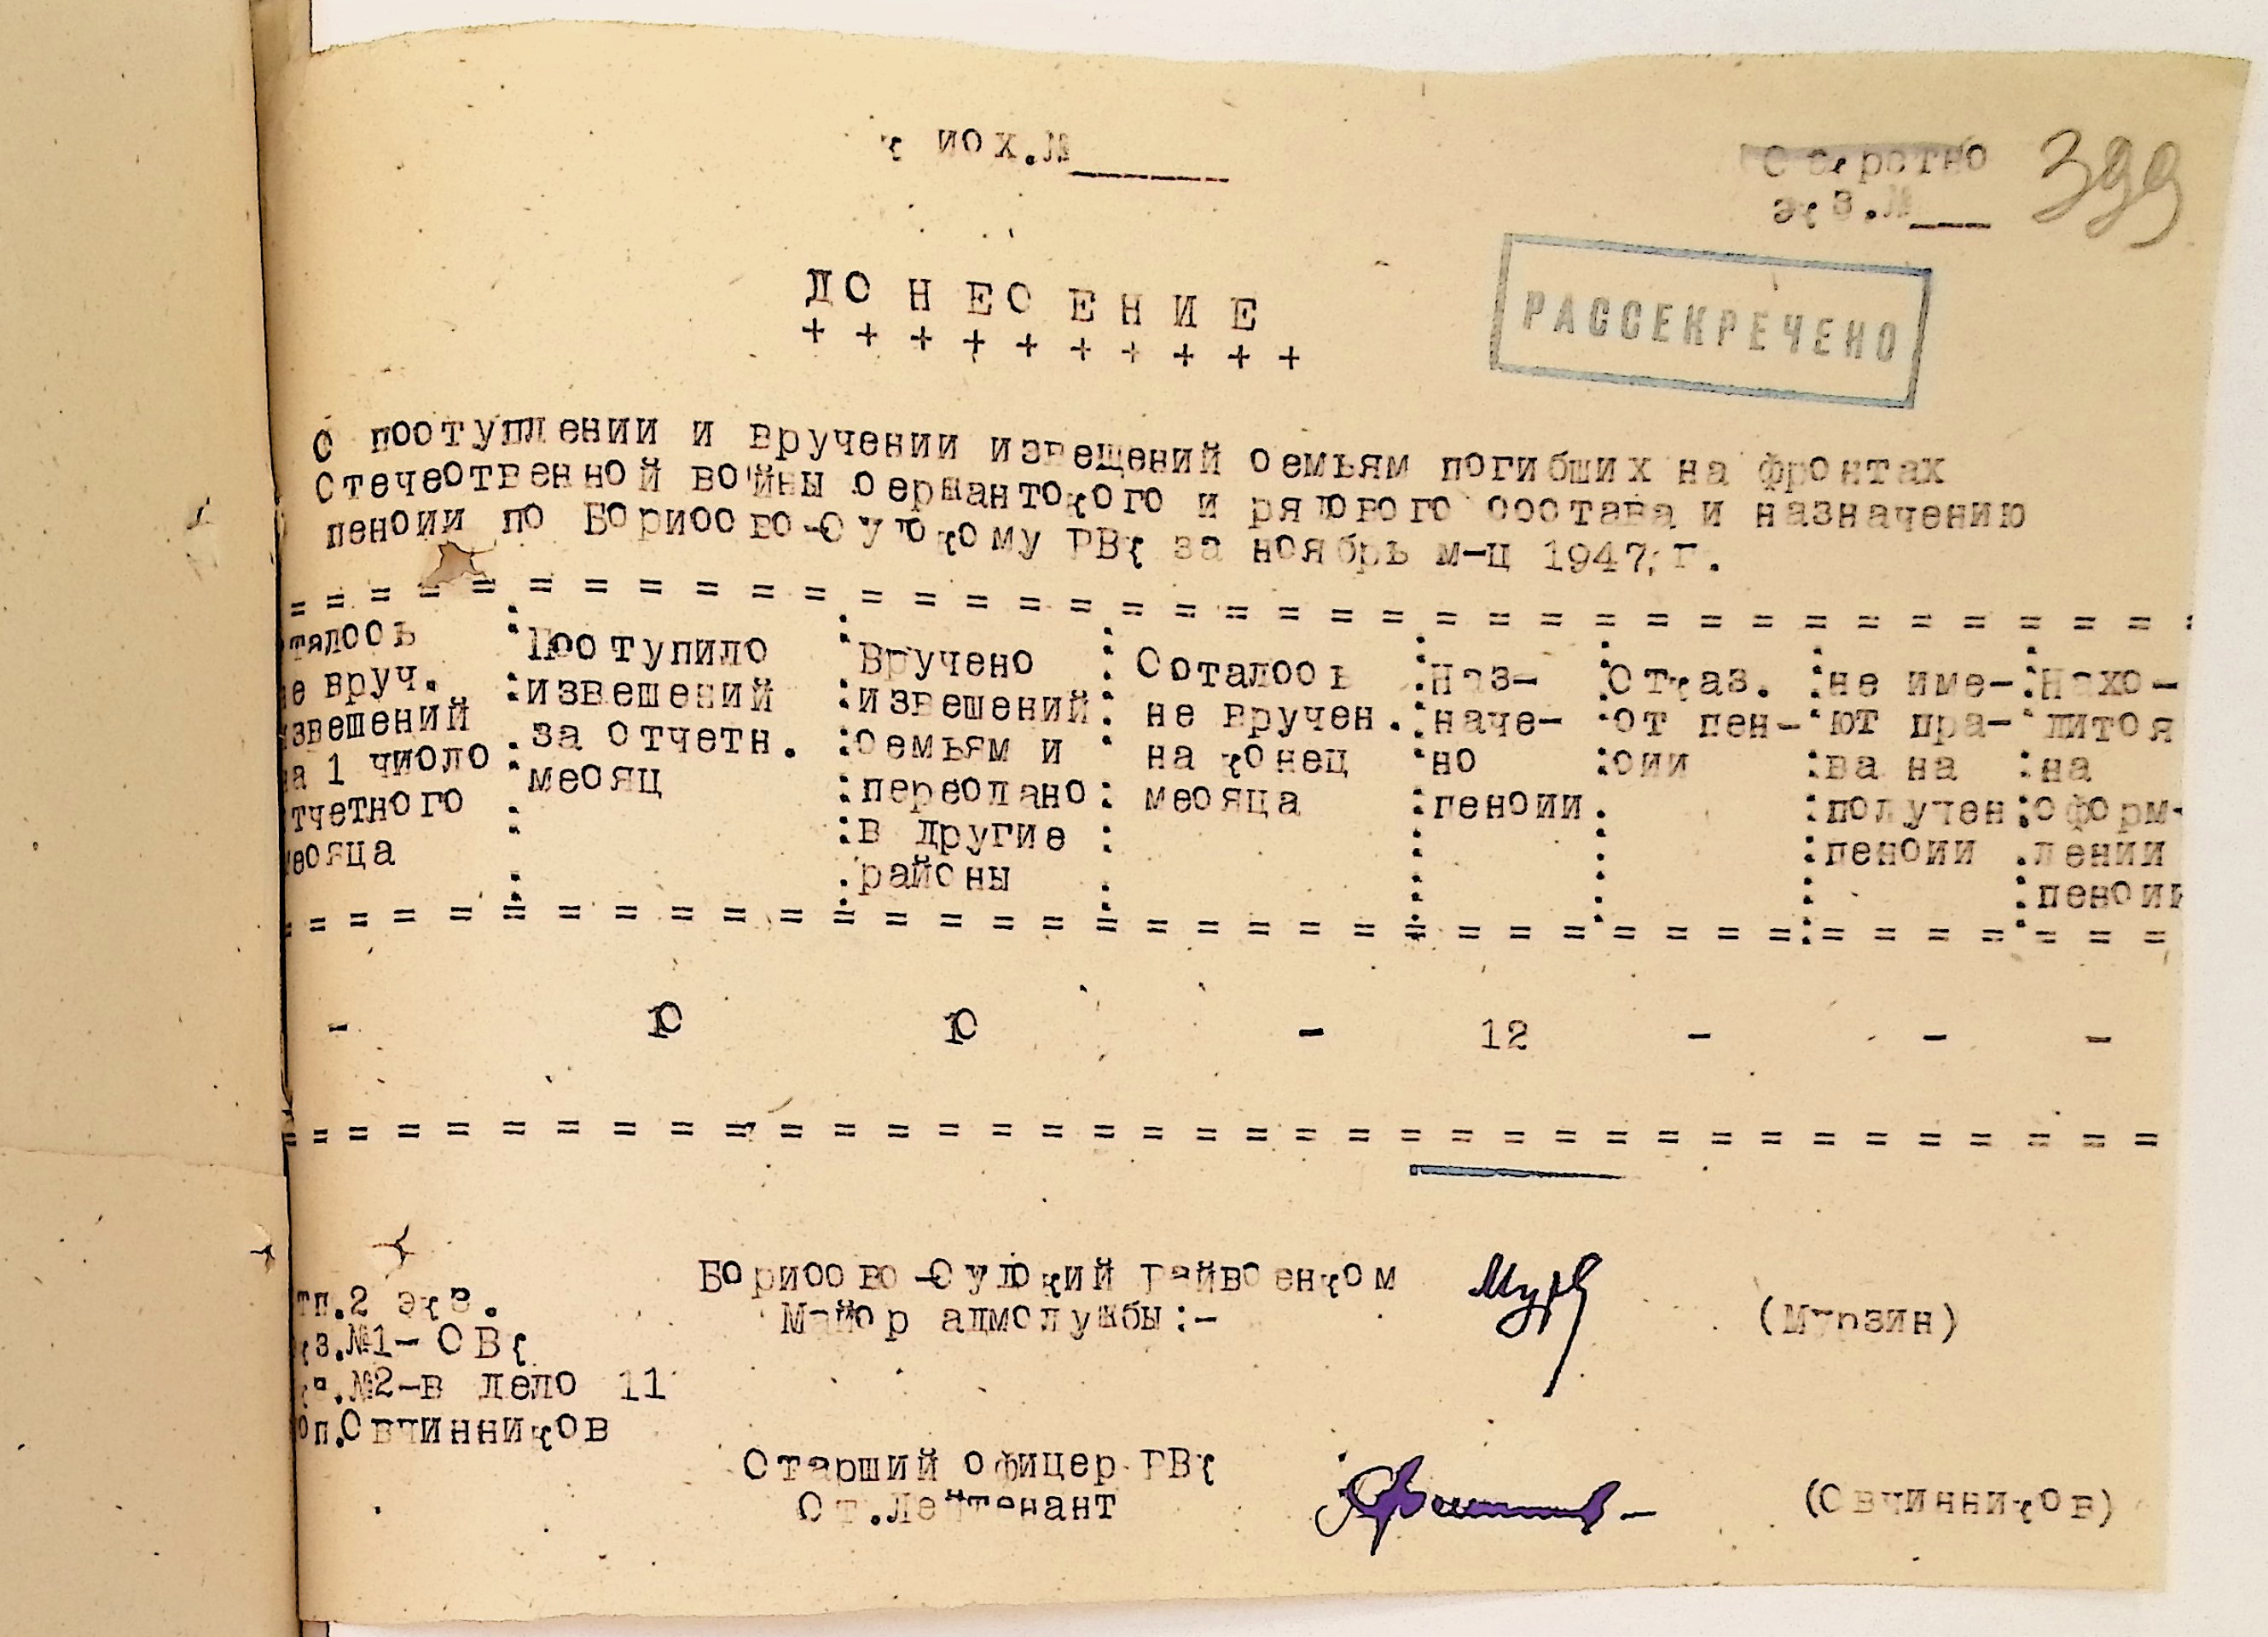 к исх.№
Секретно
экз.№
399
ДОНЕСЕНИЕ
+ + + + + + + + + +
РАССЕКРЕЧЕНО
О поступлении и вручении извещений семьям погибших на фронтах
Отечественной войны сержантского и рядового состава и назначению
пенсии по Борисово-Судскому РВК за ноябрь м-ц 1947 г.
талось
не вруч.
звешений
на 1 число
тчетного
месяца
Поступило
извешений
за отчетн.
месяц
Вручено
извешений
семьям и
переслано
в другие
районы
Осталось
не вручен.
на конец
месяца
Наз-
наче-
но
пенсии.
Отказ.
от пен-
сии
не име-
ют пра-
ва на
получен
пенсии
Нахо-
дится
на
оформ-
лении
пенсии
- 10 10 - 12 - - -
Борисово-Судский райвоенком
Майор адмслужбы:-
(Мурзин)
тп.2 экз.
кз.№1- ОВК
кз.№2-в дело 11
оп.Овчинников
Старший офицер РВК
Ст.Лейтенант
(Овчинников)